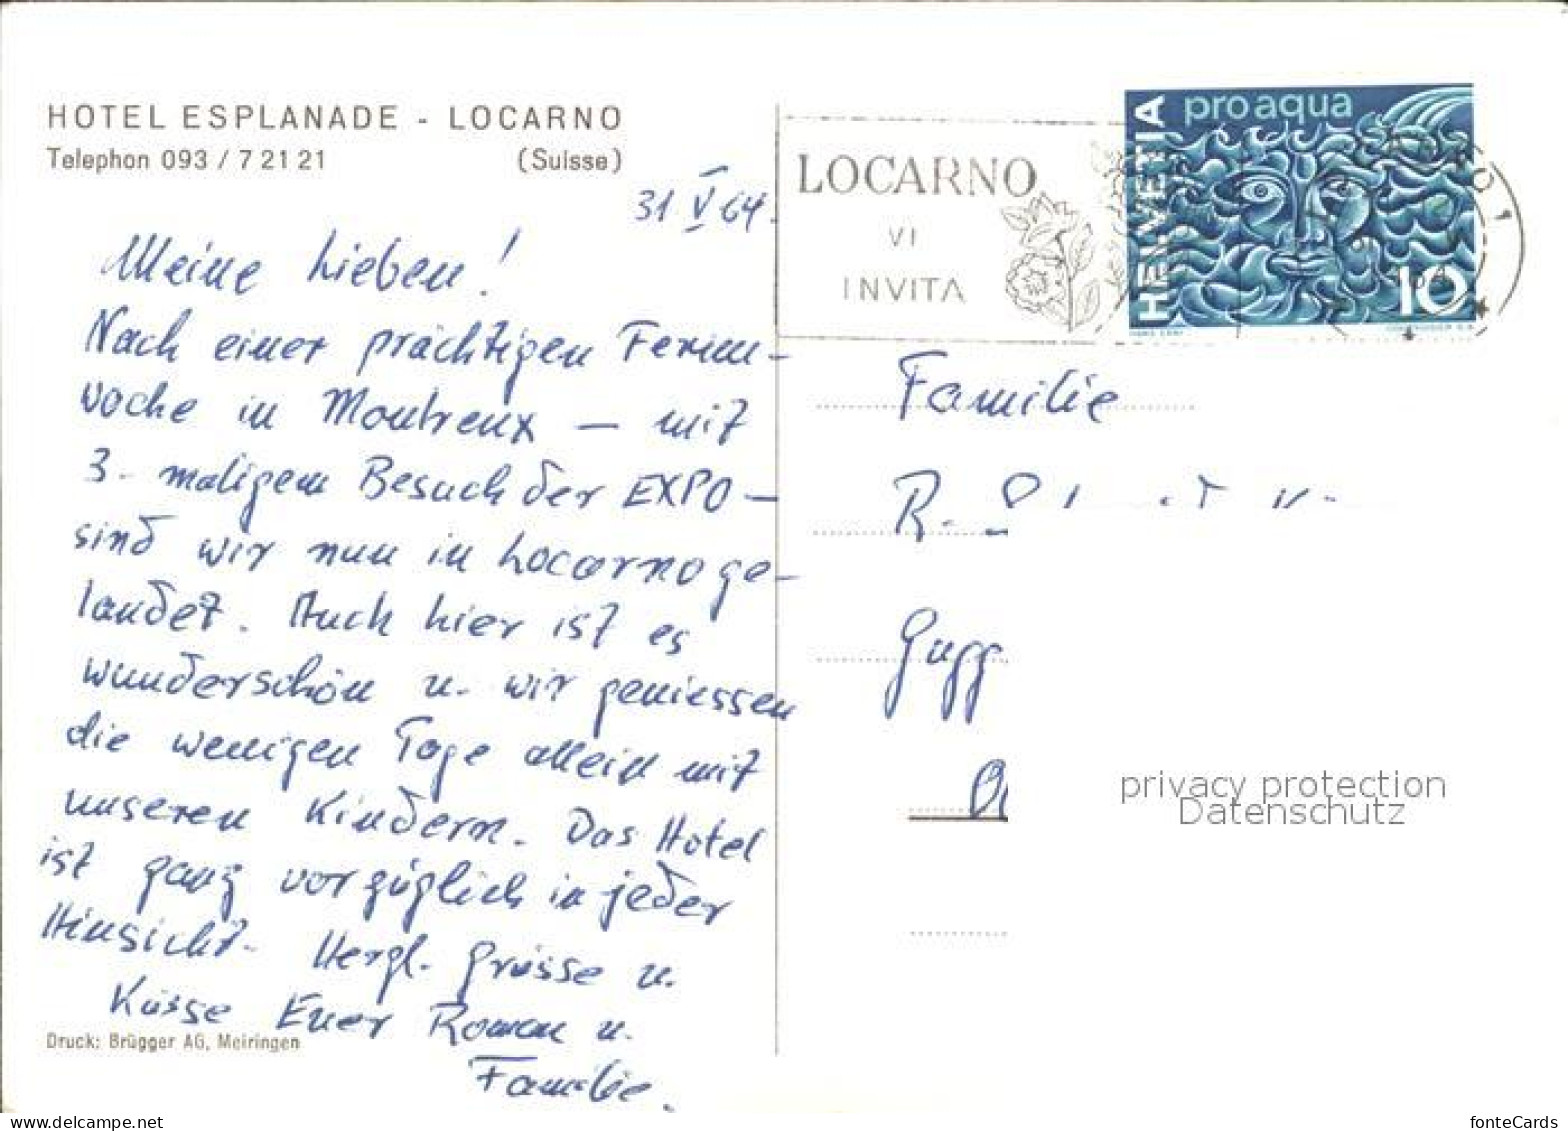 HOTEL ESPLANADE - LOCARNO
Telephon 093 / 7 21 21 (Suisse)
31 V 64.
Meine Lieben!
Nach einer prächtigen Ferien-
woche in Montreux – mit
3-maligem Besuch der EXPO –
sind wir nun in Locarno ge-
landet. Auch hier ist es
wunderschön u. wir geniessen
die wenigen Tage allein mit
unseren Kindern. Das Hotel
ist ganz vorzüglich in jeder
Hinsicht. Herzl. Grüsse u.
Küsse Euer Roman u.
Familie.
Druck: Brügger AG, Meiringen
LOCARNO
VI
INVITA
HELVETIA
pro aqua
10
Familie
R.
Gugg
privacy protection
Datenschutz
fonteCards